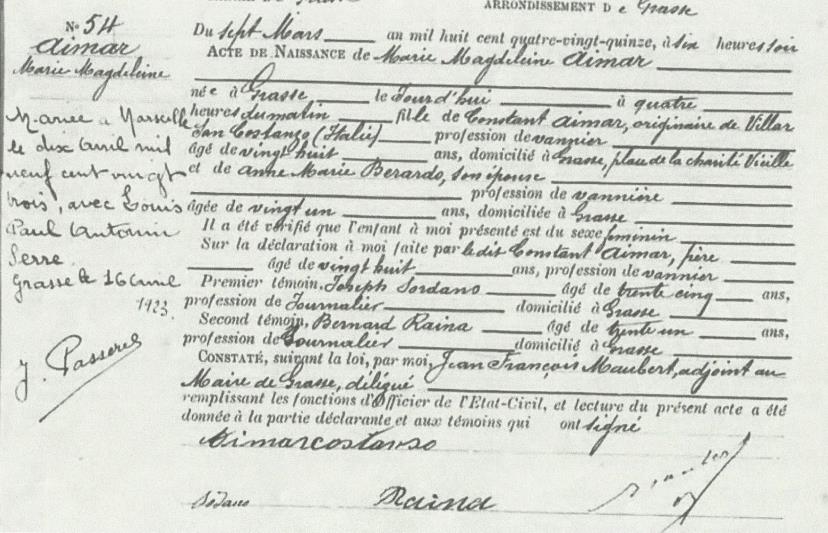 ARRONDISSEMENT De Grasse
N° 54
Aimar
Marie Magdeleine
Mariée à Marseille
le dix avril mil
neuf cent vingt
trois, avec Louis
Paul Antonin
Serre
Grasse le 16 avril
1923.
J. Passerel
Du sept Mars an mil huit cent quatre-vingt-quinze, à six heures soir
ACTE DE NAISSANCE de Marie Magdeleine Aimar
née à Grasse le Jourd'hui à quatre
heures du matin fille de Constant Aimar, originaire de Villar
San Costanzo (Italie) profession de vannier
âgé de vingt huit ans, domicilié à Grasse, place de la charité Vieille
et de Anne Marie Berardo, son épouse
profession de vannière
âgée de vingt un ans, domiciliée à Grasse
Il a été vérifié que l'enfant à moi présenté est du sexe feminin
Sur la déclaration à moi faite par le dit Constant Aimar, père
âgé de vingt huit ans, profession de vannier
Premier témoin, Joseph Sordano âgé de trente cinq ans,
profession de Journalier domicilié à Grasse
Second témoin, Bernard Raina âgé de trente un ans,
profession de Journalier domicilié à Grasse
CONSTATÉ, suivant la loi, par moi, Jean François Maubert, adjoint au
Maire de Grasse, délégué
remplissant les fonctions d'Officier de l'Etat-Civil, et lecture du présent acte a été
donnée à la partie déclarante et aux témoins qui ont signé
Aimar costanso
Sodano Raina